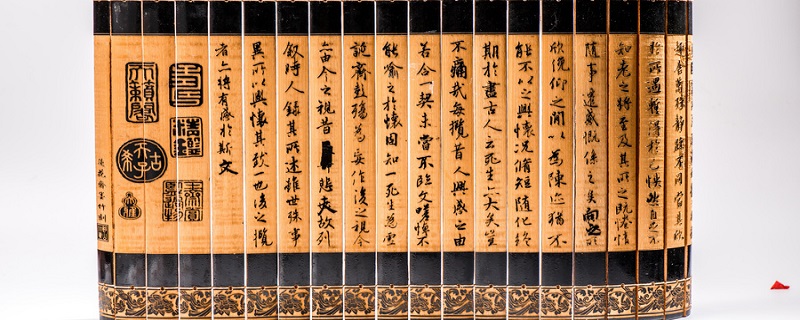 趣舍萬殊静躁不同當其欣
於所遇蹔得於己怏然自足不
知老之將至及其所之既惓情
隨事遷感慨係之矣向之所
欣俛仰之閒以為陳迹猶不
能不以之興懷況脩短隨化終
期於盡古人云死生亦大矣豈
不痛哉每攬昔人興感之由
若合一契未嘗不臨文嗟悼不
能喻之於懷固知一死生為虛
誕齊彭殤為妄作後之視今
亦由今之視昔悲夫故列
敘時人錄其所述雖世殊事
異所以興懷其致一也後之攬
者亦將有感於斯文